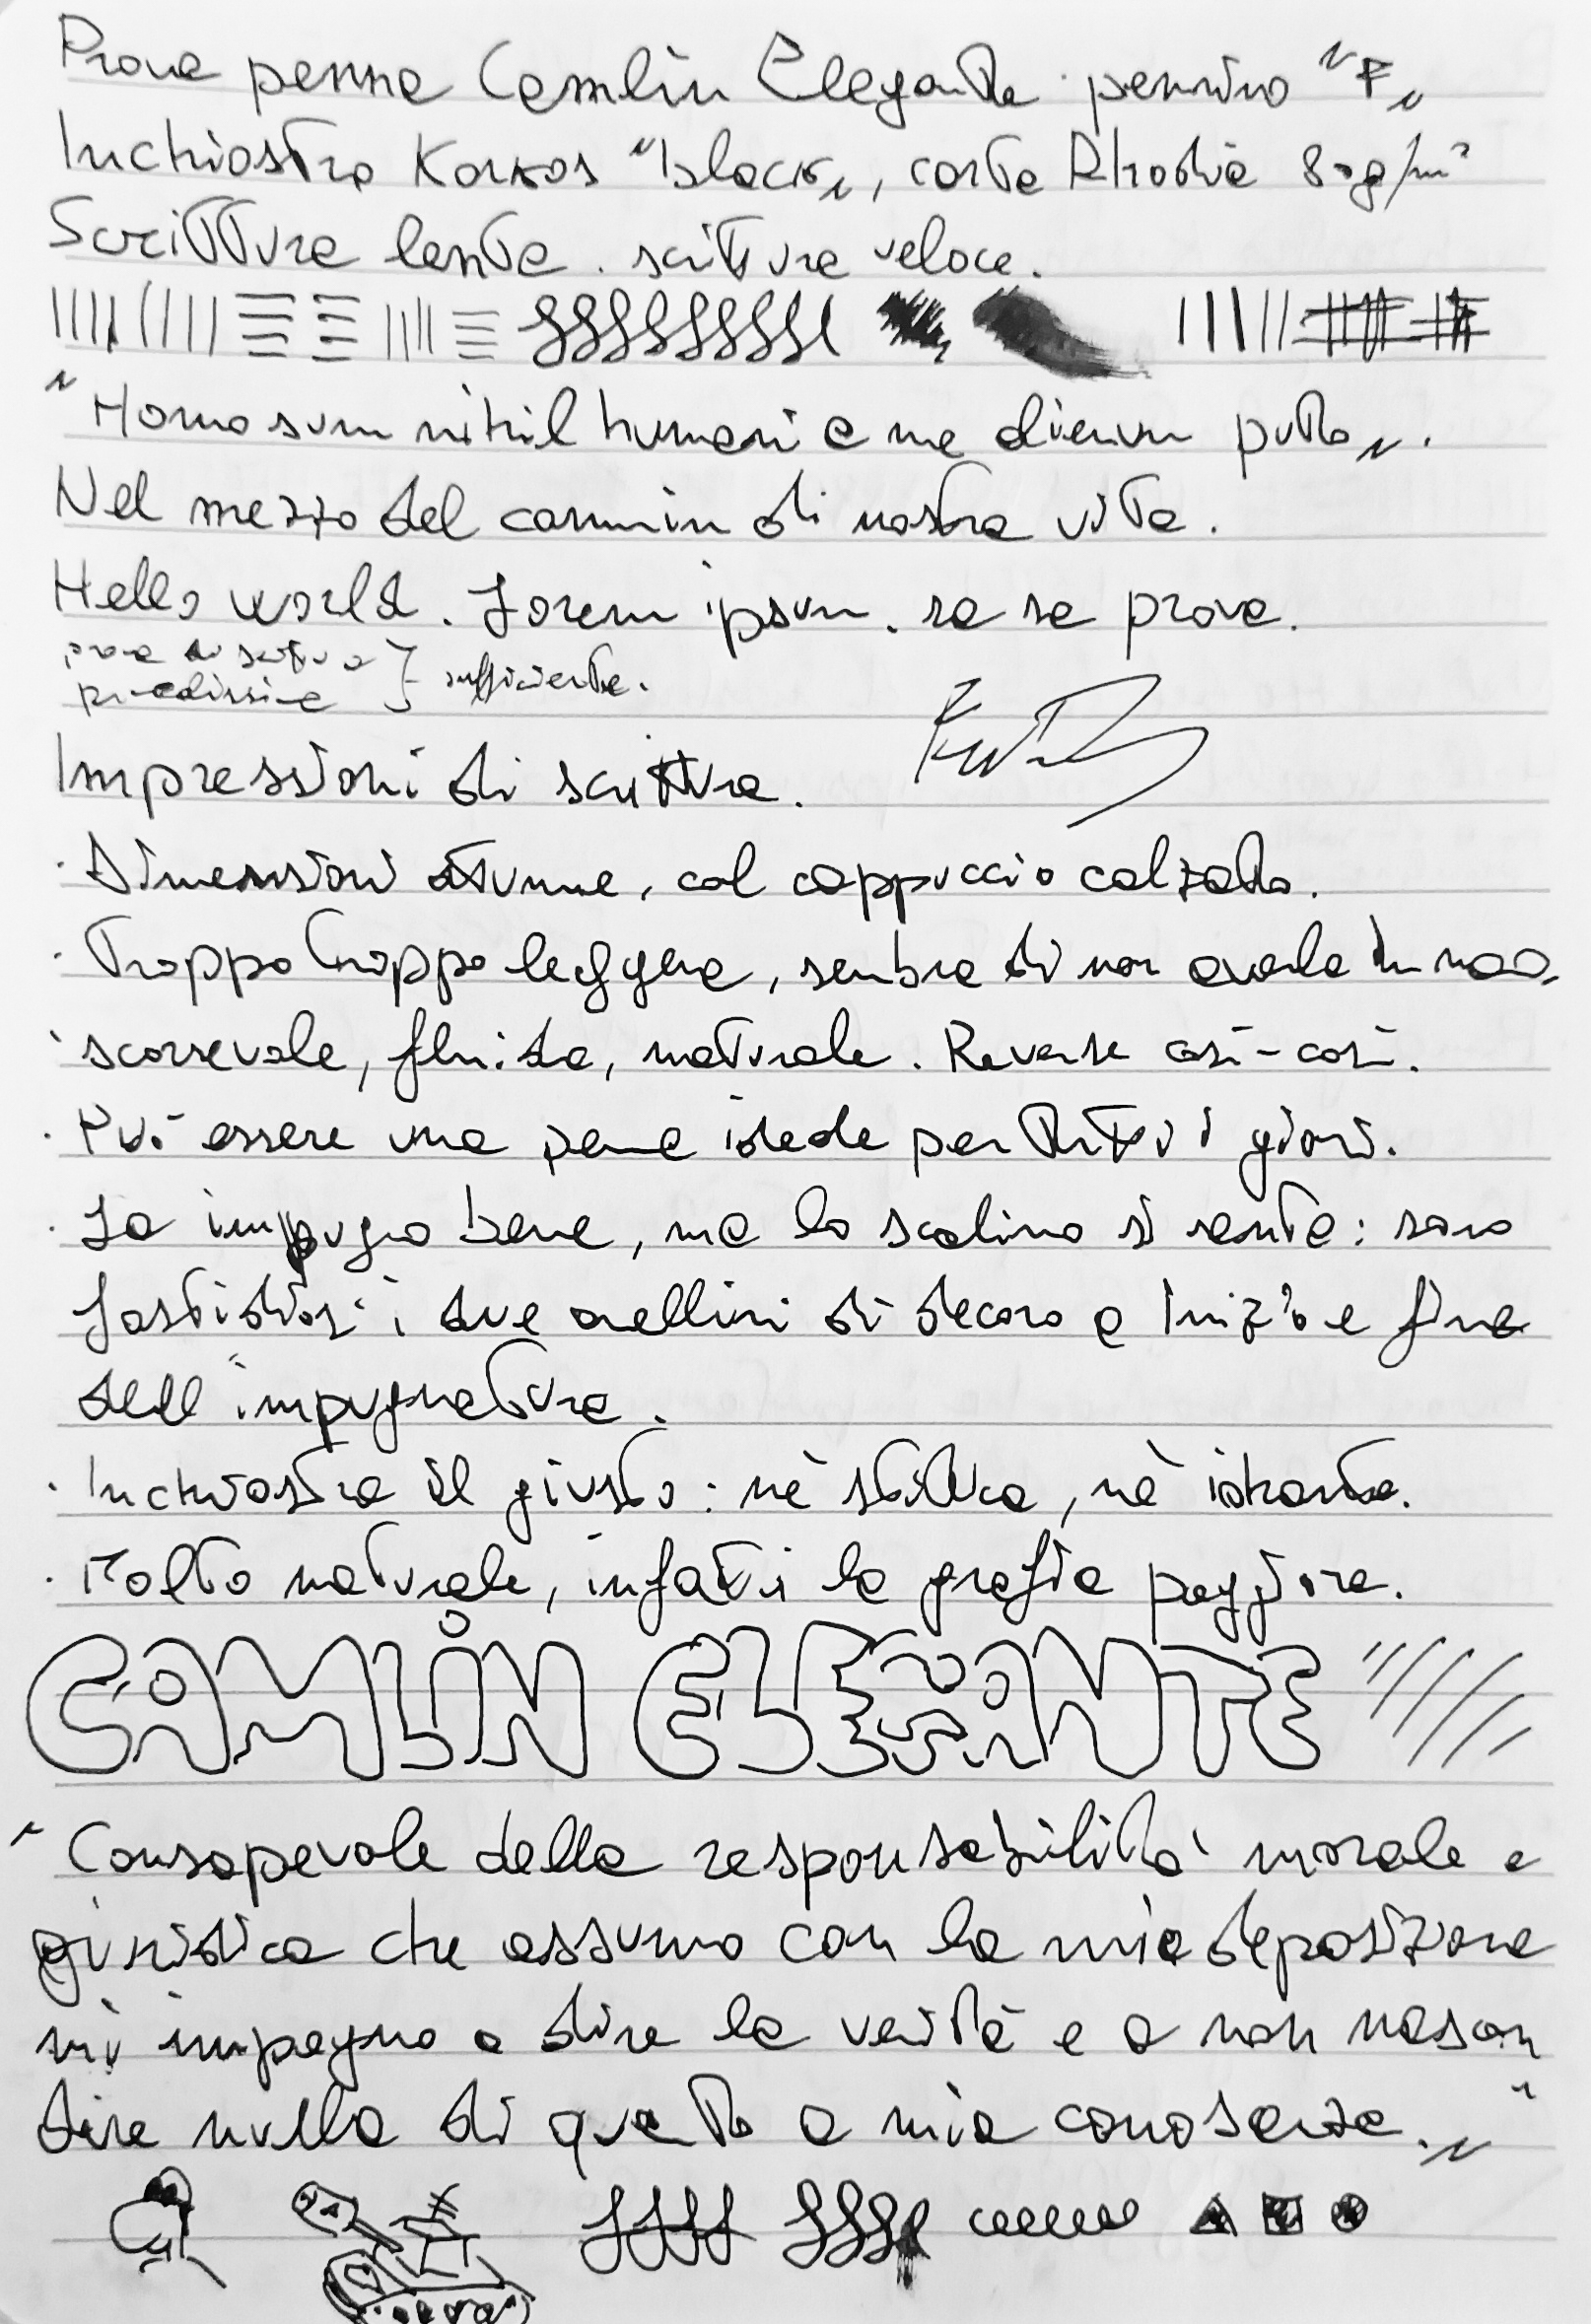 Prova penna Camlin Elegante pennino "F"
Inchiostro Korkos "black", carta Rhodia 80g/m²
Scrittura lenta. scrittura veloce.
"Homo sum nihil humani a me alienum puto".
Nel mezzo del cammin di nostra vita.
Hello world. Lorem ipsum. sa sa prova.
prova di scrittura } sufficiente.
piccolissima
Impressioni di scrittura.
· Dimensioni ottime, col cappuccio calzato.
· Troppo troppo leggera, sembra di non averla in mano.
· scorrevole, fluida, naturale. Reverse così-così.
· Può essere una penna ideale per tutti i giorni.
· La impugno bene, ma lo scalino si sente: sono
fastidiosi i due anellini di decoro a inizio e fine
dell'impugnatura.
· Inchiostra il giusto: nè stitica, nè idrante.
· Molto naturale, infatti la grafia peggiora.
CAMLIN ELEGANTE
"Consapevole della responsabilità morale e
giuridica che assumo con la mia deposizione
mi impegno a dire la verità e a non nascon
dere nulla di quanto a mia conoscenza."